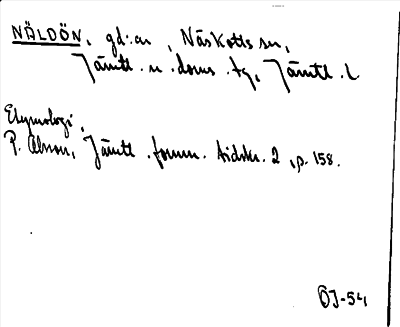 NÄLDÖN, gd:ar, Näskotts sn,
Jämtl. n. doms. tg, Jämtl. l
Etymologi.
P. Olsson, Jämtl. fornm. tidskr. 2, p. 158.
ÖJ-54